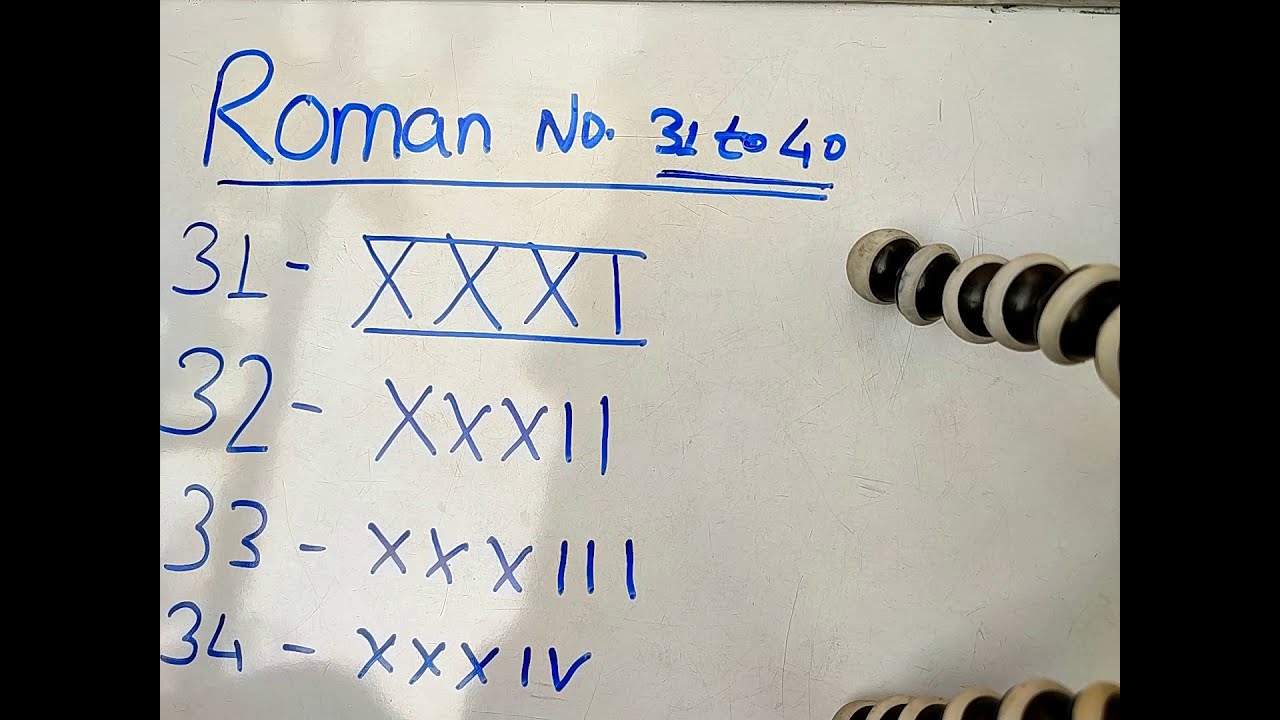 Roman No. 31 to 40
31 - XXXI
32 - XXXII
33 - XXXIII
34 - XXXIV